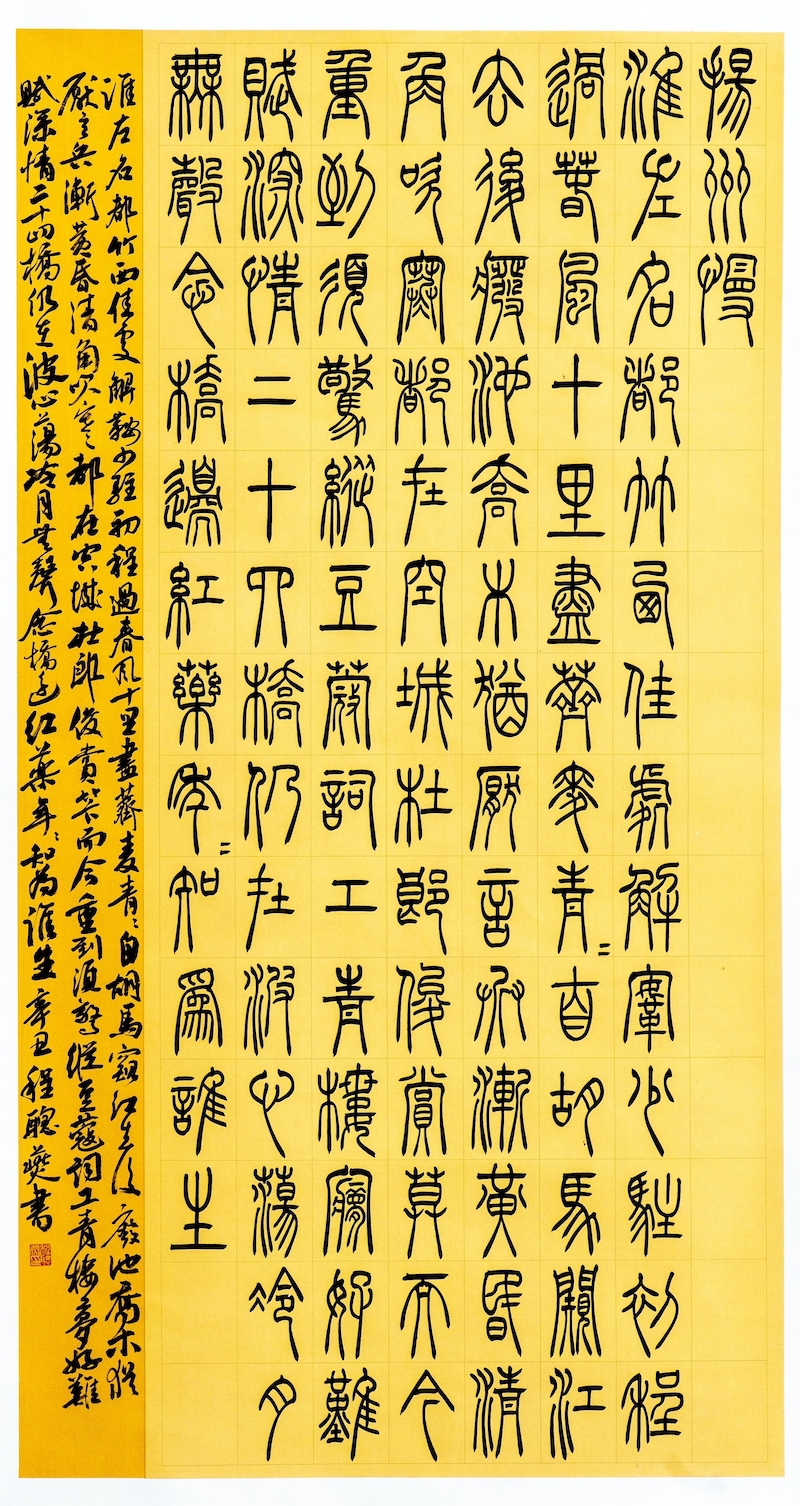 揚州慢
淮左名都竹西佳處解鞌少駐初程
過春風十里盡薺麥青〻自胡馬闚江
去後癈池喬木猶厭言兵漸黃昏清
角吹寒都在空城杜郎俊賞算而今
重到須驚縱豆蔻詞工青樓夢好難
賦深情二十四橋仍在波心蕩冷月
無聲念橋邊紅藥年〻知爲誰生
淮左名都竹西佳處解鞍少駐初程過春風十里盡薺麥青〻自胡馬窺江去後廢池喬木猶
厭言兵漸黃昏清角吹寒都在空城杜郎俊賞算而今重到須驚縱豆蔻詞工青樓夢好難
賦深情二十四橋仍在波心蕩冷月無聲念橋邊紅藥年〻知爲誰生辛丑程聰書